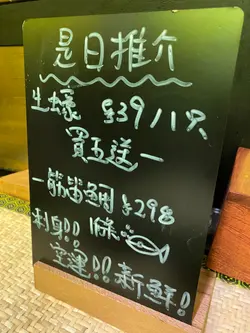 是日推介
生蠔 $39/1只
買五送一
一筋雷鯛 $298
刺身!! 1條
空運!! 新鮮!!